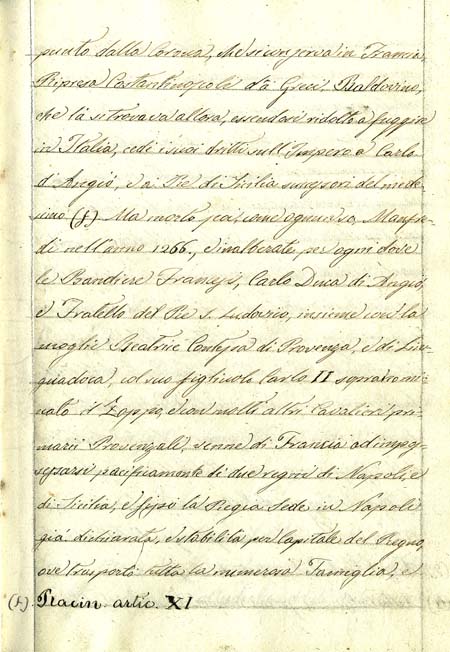 punto dalla Corona, che si conserva in Francia,
Ripresa Costantinopoli da' Greci, Baldovino,
che là si trovava allora, essendosi ridotto a fuggire
in Italia, cedè i suoi dritti sull'Impero a Carlo
d'Angiò, e ai Re di Sicilia successori del mede-
simo (f). Ma morto poi, come ognun sa, Manfre-
di nell'anno 1266., e inalberate per ogni dove
le Bandiere Francesi, Carlo Duca di Angiò,
e Fratello del Re S. Ludovico, insieme con la
moglie Beatrice Contessa di Provenza, e di Lin-
guadoca, col suo figliuolo Carlo II sopranno mi-
nato il Zoppo, e con molti altri Cavalieri pri-
marii Provenzali, venne di Francia ad impos-
sessarsi pacificamente di due regni di Napoli, e
di Sicilia, e fissò la Regia Sede in Napoli
già dichiarata, e stabilita per Capitale del Regno,
ove trasportò tutta la numerosa Famiglia, e
(f). artic. XI